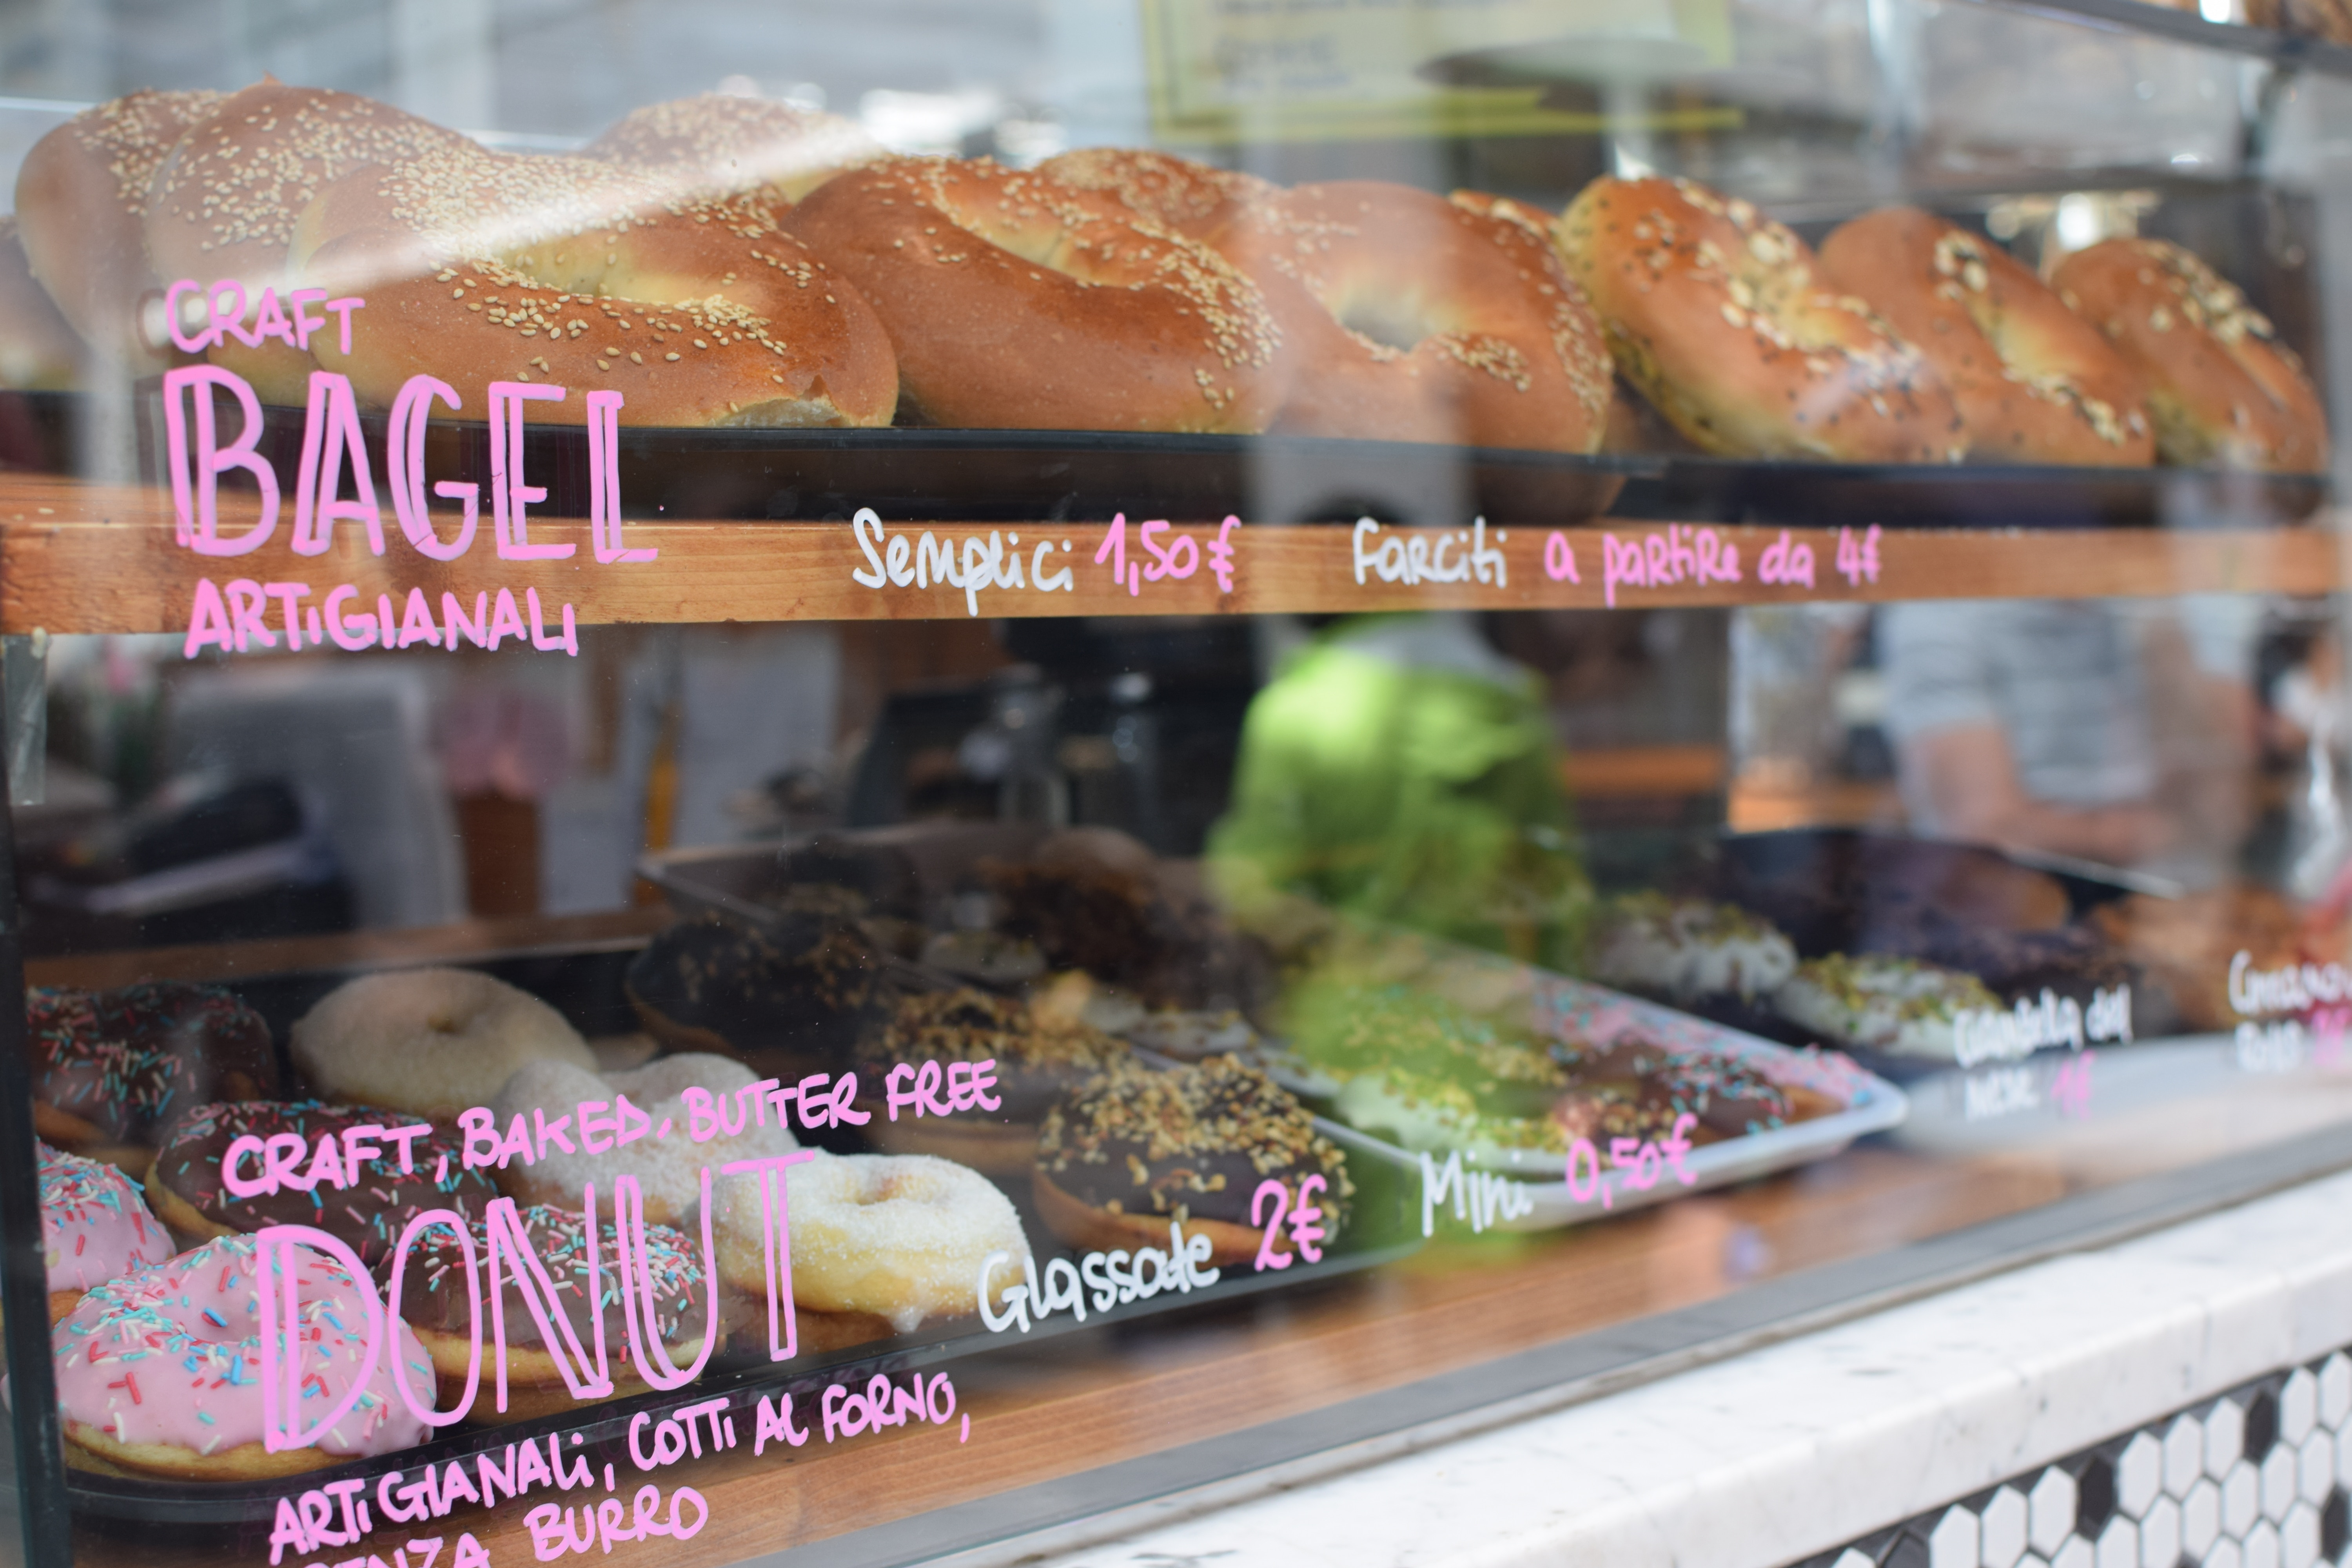 CRAFT
BAGEL
ARTIGIANALI
Semplici 1,50€
Farciti a partire da 4€
CRAFT, BAKED, BUTTER FREE
DONUT
ARTIGIANALI, COTTI AL FORNO,
SENZA BURRO
Glassate 2€
Mini 0,50€
del
MESE 1€